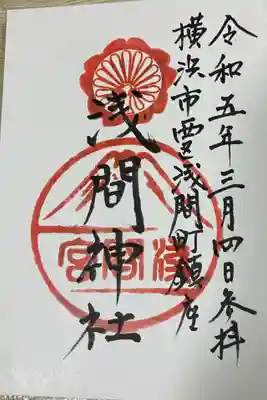 令和五年三月四日参拝
横浜市西区浅間町鎮座
浅間神社
浅間宮